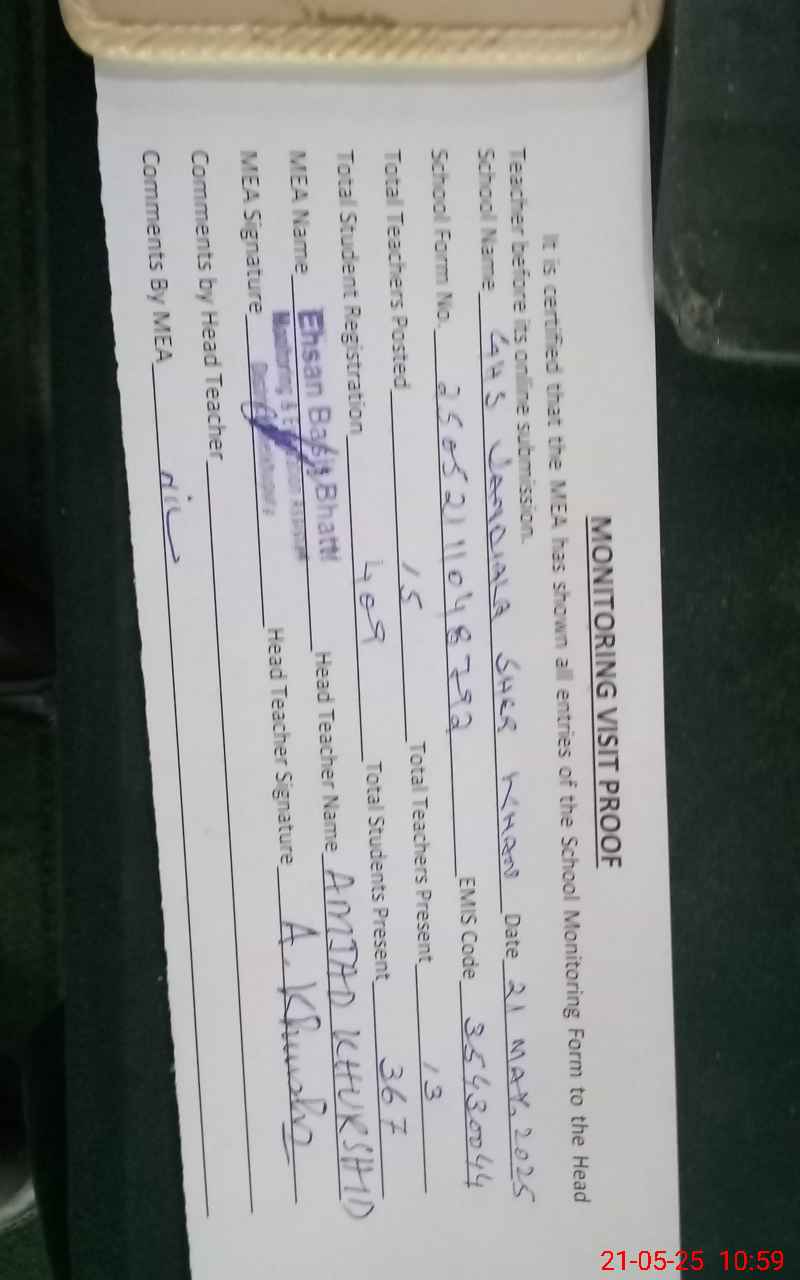 MONITORING VISIT PROOF
It is certified that the MEA has shown all entries of the School Monitoring Form to the Head
Teacher before its online submission.
School Name GHS JANDIALA SHER KHAN Date 21 MAY. 2025
School Form No. 25052111048792 EMIS Code 35430044
Total Teachers Posted 15 Total Teachers Present 13
Total Student Registration 409 Total Students Present 367
MEA Name Ehsan Basig Bhatti Head Teacher Name AMJAD KHURSHID
Monitoring & Assistant
MEA Signature Head Teacher Signature A. Khurshid
Comments by Head Teacher
Comments By MEA nil
21-05-25 10:59